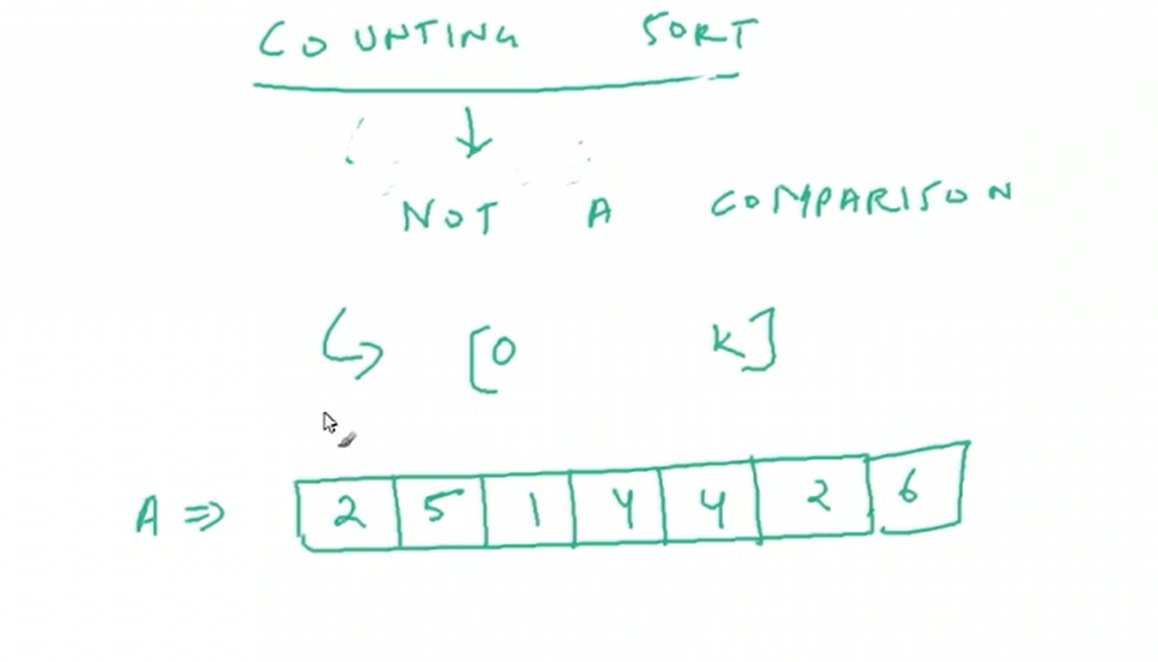 COUNTING SORT
NOT A COMPARISON
[0 K]
A ⇒ 2 5 1 4 4 2 6